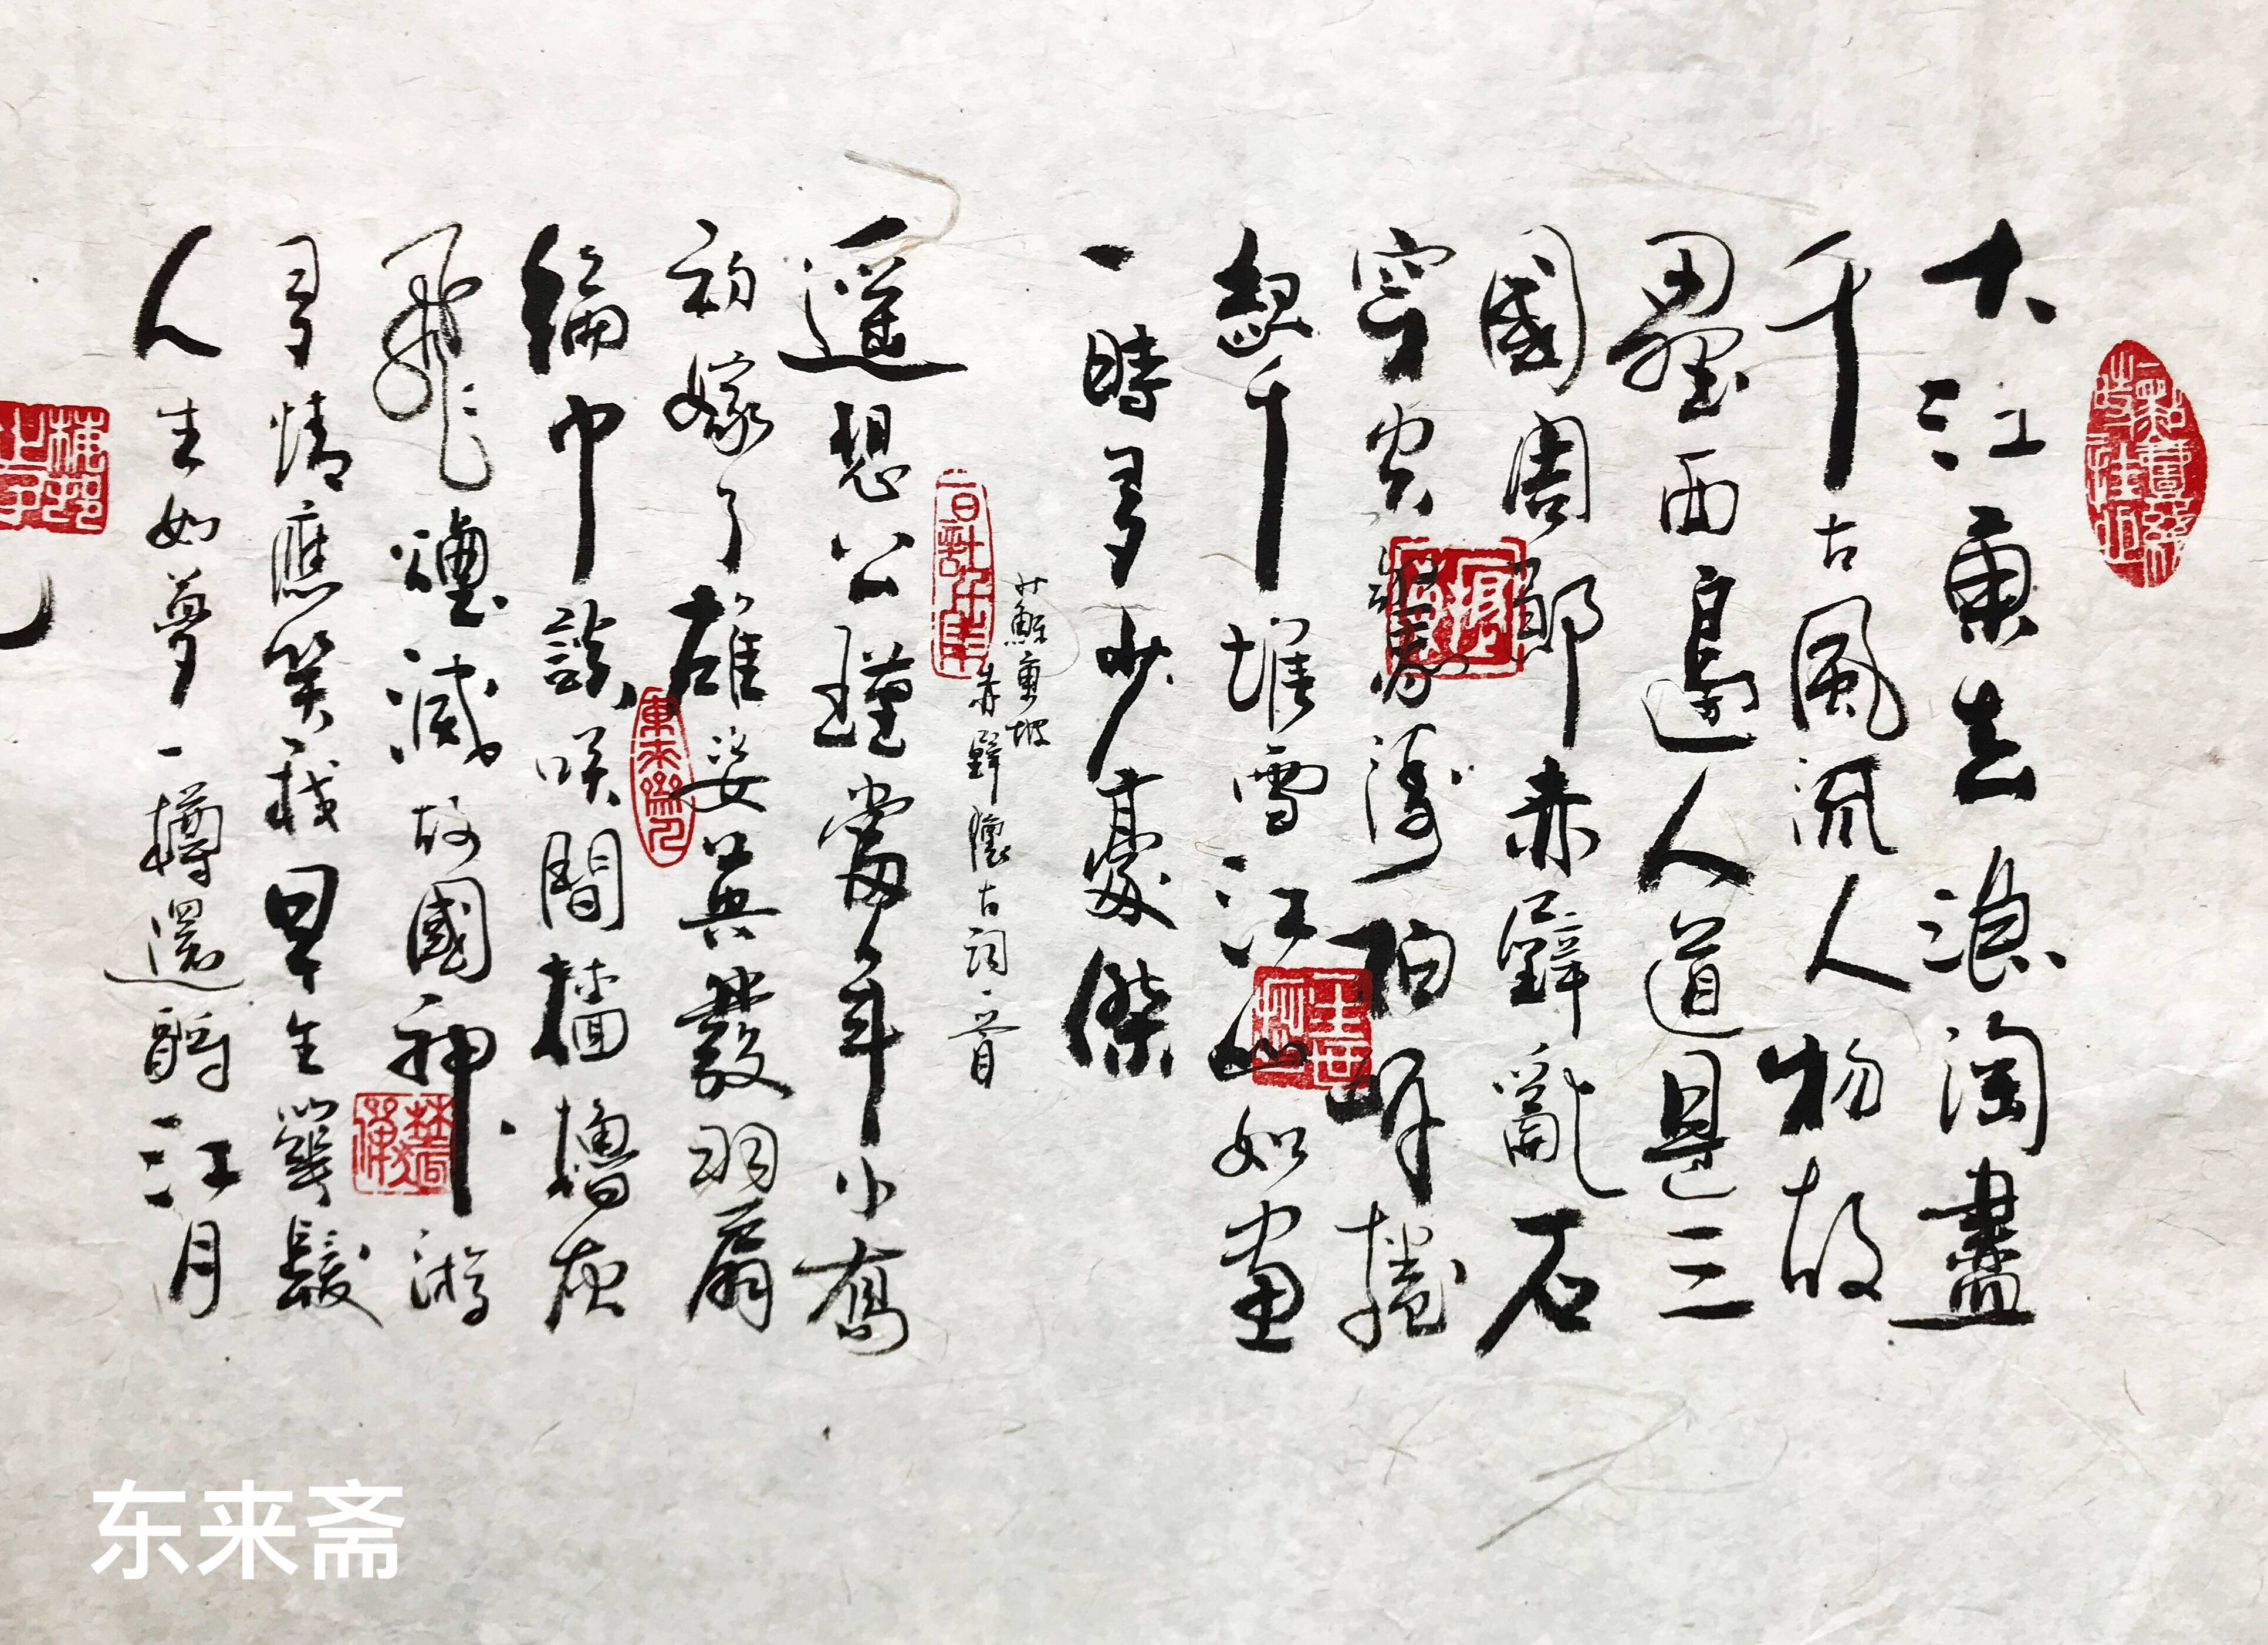 大江東去浪淘盡
千古風流人物故
壘西邊人道是三
國周郎赤壁亂石
穿空驚濤拍岸捲
起千堆雪江山如畫
一時多少豪傑
蘇東坡
赤壁懷古詞一首
遥想公瑾當年小喬
初嫁了雄姿英發羽扇
綸巾談咲間檣櫓灰
飛煙滅故國神游
多情應笑我早生華髮
人生如夢一樽還酹江月
东来斋